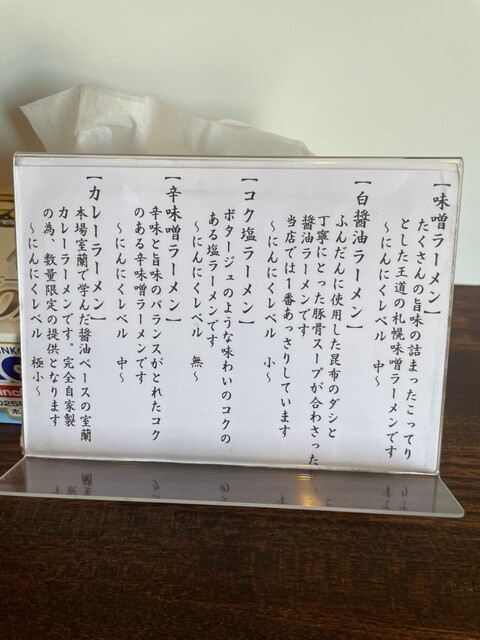 【味噌ラーメン】
たくさんの旨味の詰まったこってり
とした王道の札幌味噌ラーメンです
～にんにくレベル 中～
【白醤油ラーメン】
ふんだんに使用した昆布のダシと
丁寧にとった豚骨スープが合わさった
醤油ラーメンです
当店では1番あっさりしています
～にんにくレベル 小～
【コク塩ラーメン】
ポタージュのような味わいのコクの
ある塩ラーメンです
～にんにくレベル 無～
【辛味噌ラーメン】
辛味と旨味のバランスがとれたコク
のある辛味噌ラーメンです
～にんにくレベル 中～
【カレーラーメン】
本場室蘭で学んだ醤油ベースの室蘭
カレーラーメンです。完全自家製
の為、数量限定の提供となります
～にんにくレベル 極小～